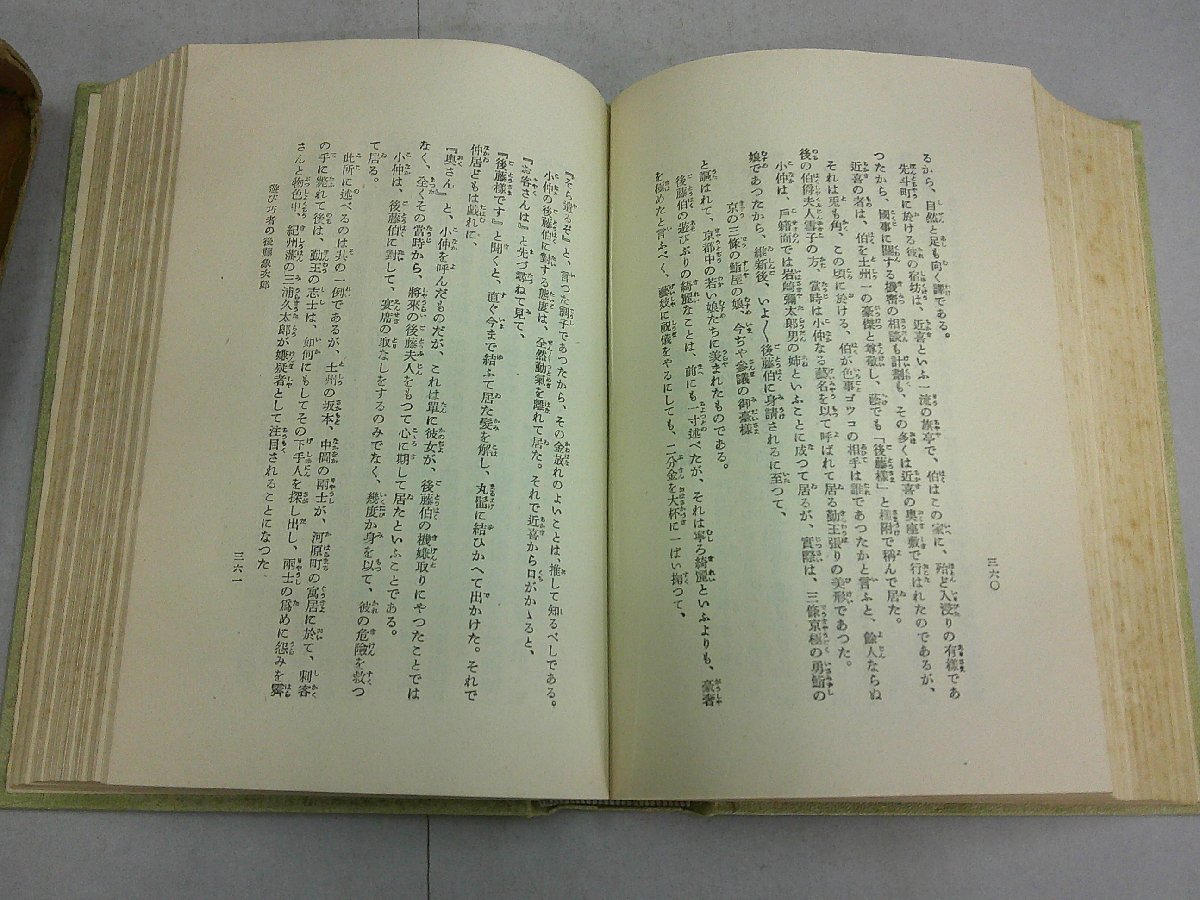 るから、自然と足も向く譯である。
先斗町に於ける彼の宿坊は、近喜といふ一流の旅亭で、伯はこの家に、殆ど入浸りの有樣であ
つたから、國事に關する機密の相談も計劃も、その多くは近喜の奥座敷で行はれたのであるが、
近喜の者は、伯を土州一の豪傑と尊敬し、蔭でも「後藤樣」と極附で稱んで居た。
それは兎も角、この頃に於ける、伯が色事ゴツコの相手は誰であつたかと言ふと、餘人ならぬ
後の伯爵夫人雪子の方、當時は小仲なる藝名を以て呼ばれて居る勤王張りの美形であつた。
小仲は、戸籍面では岩崎彌太郎男の姉といふことに成つて居るが、實際は、三條京極の勇鮨の
娘であつたから、維新後、いよ〱後藤伯に身請されるに至つて、
京の三條の鮨屋の娘、今ぢや參議の御臺樣
と謳はれて、京都中の若い娘たちに羨まれたものである。
後藤伯の遊びぶりの綺麗なことは、前にも一寸述べたが、それは寧ろ綺麗といふよりも、豪奢
を極めたと言ふべく、藝妓に祝儀をやるにしても、二分金を大杯に一ぱい掬つて、
三六〇
『そら遣るぞ』と、言つた調子であつたから、その金放れのよいことは推して知るべしである。
小仲の後藤伯に對する態度は、全然勘氣を離れて居た。それで近喜から口がかゝると、
『お客さんは』と先づ尋ねて見て、
『後藤樣です』と聞くと、直ぐ今まで結ふて居た髮を解し、丸髷に結ひかへて出かけた。それで
仲居どもは戲れに、
『奥さん』と、小仲を呼んだものだが、これは單に彼女が、後藤伯の機嫌取りにやつたことでは
なく、全くその當時から、將來の後藤夫人をもつて心に期して居たといふことである。
小仲は、後藤伯に對して、宴席の取なしをするのみでなく、幾度か身を以て、彼の危險を救つ
て居る。
此所に述べるのは其の一例であるが、土州の坂本、中岡の兩士が、河原町の寓居に於て、刺客
の手に斃れて後は、勤王の志士は、如何にもしてその下手人を探し出し、兩士の爲めに怨みを霽
さんと物色中、紀州藩の三浦久太郎が嫌疑者として注目されることになつた
遊び巧者の後藤象次郎
三六一